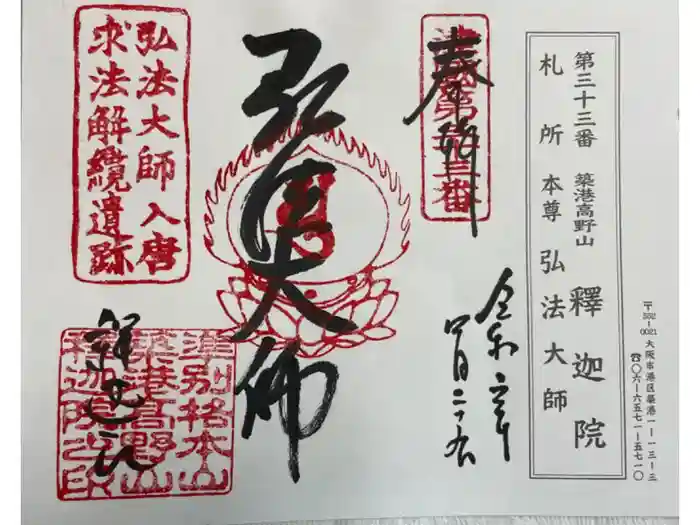 第三十三番 築港高野山 釋迦院
札所本尊 弘法大師
〒552-0021 大阪市港区築港一ー一三ー三
☎〇六ー六五七一ー五七一〇
奉拝
弘法大師
弘法大師入唐
求法解纜遺跡
準別格本山
築港高野山
釋迦院之印
釋迦院